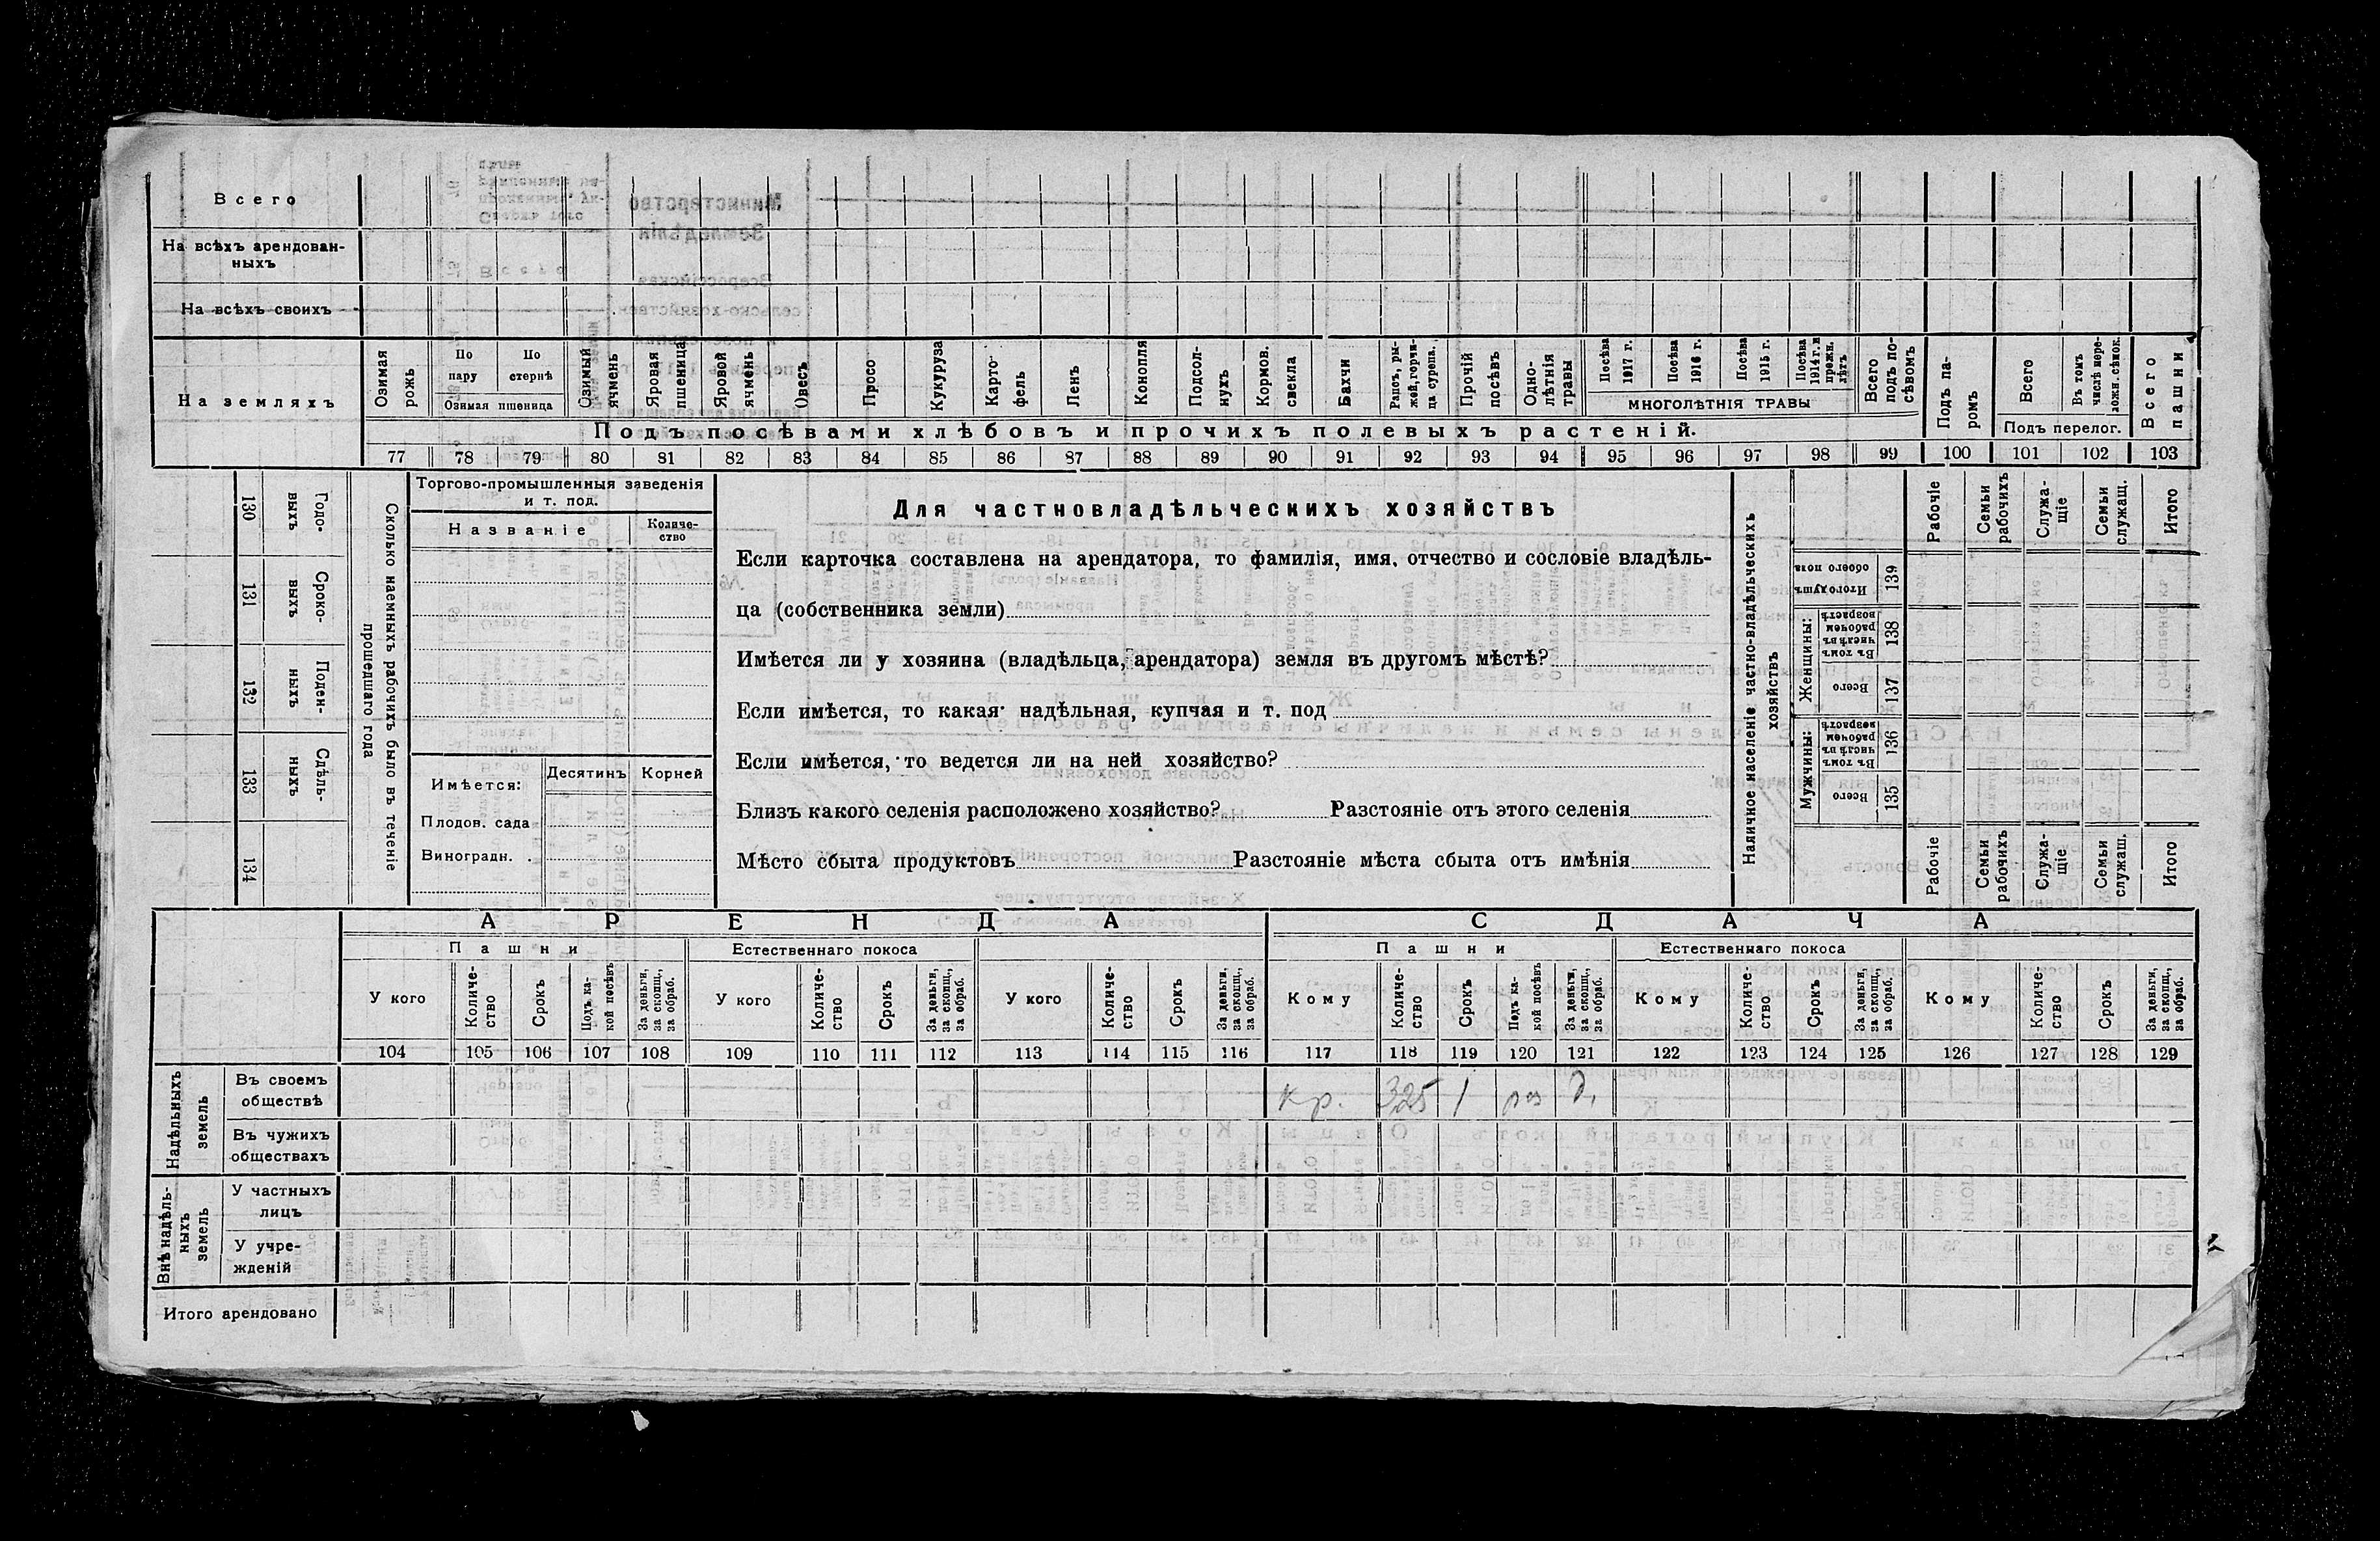 Всего
На всѣхъ арендован-
ныхъ
На всѣхъ своихъ
На земляхъ
Озимая рожь
По пару
По стернѣ
Озимая пшеница
Озимый ячмень
Яровая пшеница
Яровой ячмень
Овесъ
Просо
Кукуруза
Карто-
фель
Ленъ
Конопля
Подсол-
нухъ
Кормов. свекла
Бахчи
Рапсъ, ры-
жей, горчи-
ца сурепа.
Прочій посѣвъ
Одно-
лѣтнія травы
Посѣва 1917 г.
Посѣва 1916 г.
Посѣва 1915 г.
Посѣва 1914 г. и прежн. лѣтъ
МНОГОЛѢТНІЯ ТРАВЫ
Всего подъ по-
сѣвомъ
Подъ па-
ромъ
Всего
Въ томъ числѣ пере-
ложн. сѣнок.
Подъ перелог.
Всего пашни
Подъ посѣвами хлѣбовъ и прочихъ полевыхъ растеній.
77 78 79 80 81 82 83 84 85 86 87 88 89 90 91 92 93 94 95 96 97 98 99 100 101 102 103
130 Годо-
выхъ
131 Сроко-
выхъ
132 Поден-
ныхъ
133 Сдѣль-
ныхъ
134
Сколько наемныхъ рабочихъ было въ теченіе
прошедшаго года
Торгово-промышленныя заведенія
и т. под.
Названіе
Количе-
ство
Имѣется:
Десятинъ
Корней
Плодов. сада
Виноградн. .
Для частновладѣльческихъ хозяйствъ
Если карточка составлена на арендатора, то фамилія, имя, отчество и сословіе владѣль-
ца (собственника земли)
Имѣется ли у хозяина (владѣльца, арендатора) земля въ другомъ мѣстѣ?
Если имѣется, то какая: надѣльная, купчая и т. под
Если имѣется, то ведется ли на ней хозяйство?
Близъ какого селенія расположено хозяйство? Разстояніе отъ этого селенія
Мѣсто сбыта продуктовъ Разстояніе мѣста сбыта отъ имѣнія
Наличное населеніе частно-владѣльческихъ
хозяйствъ
Рабочіе
Семьи рабочихъ
Служа-
щіе
Семьи служащ.
Итого
Итого душъ обоего пола 139
Женщины:
Въ томъ числѣ въ рабочем возрастѣ 138
Всего 137
Мужчины:
Въ томъ числѣ въ рабочем возрастѣ 136
Всего 135
Рабочіе
Семьи рабочихъ
Служа-
щіе
Семьи служащ.
Итого
АРЕНДА
СДАЧА
Пашни
Естественнаго покоса
Пашни
Естественнаго покоса
У кого
Количе-
ство
Срокъ
Подъ ка-
кой посѣвъ
За деньги, за скопщ., за обраб.
У кого
Количе-
ство
Срокъ
За деньги, за скопщ., за обраб.
У кого
Количе-
ство
Срокъ
За деньги, за скопщ., за обраб.
Кому
Количе-
ство
Срокъ
Подъ ка-
кой посѣвъ
За деньги, за скопщ., за обраб.
Кому
Количе-
ство
Срокъ
За деньги, за скопщ., за обраб.
Кому
Количе-
ство
Срокъ
За деньги, за скопщ., за обраб.
104 105 106 107 108 109 110 111 112 113 114 115 116 117 118 119 120 121 122 123 124 125 126 127 128 129
Надѣльныхъ земель
Въ своемъ
обществѣ
кр. 325 1 д.
Въ чужихъ
обществахъ
Внѣ надѣль-
ныхъ земель
У частныхъ
лицъ
У учре-
жденій
Итого арендовано